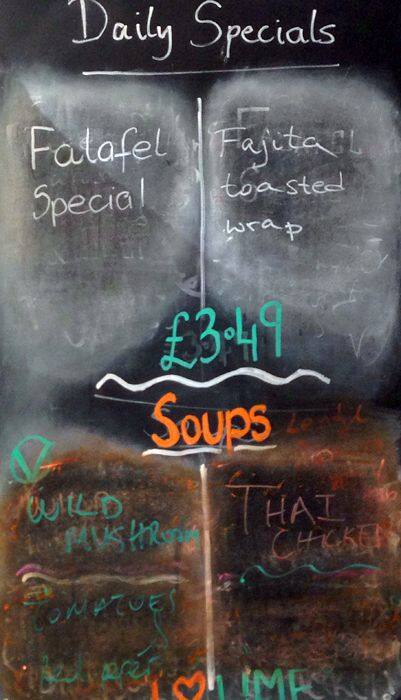 Daily Specials
Falafel
Special
Fajita
toasted
wrap
£3.49
Soups
V
WILD
MUSHROOM
THAI
CHICKEN
TOMATOES
Red
I ♥ LIME